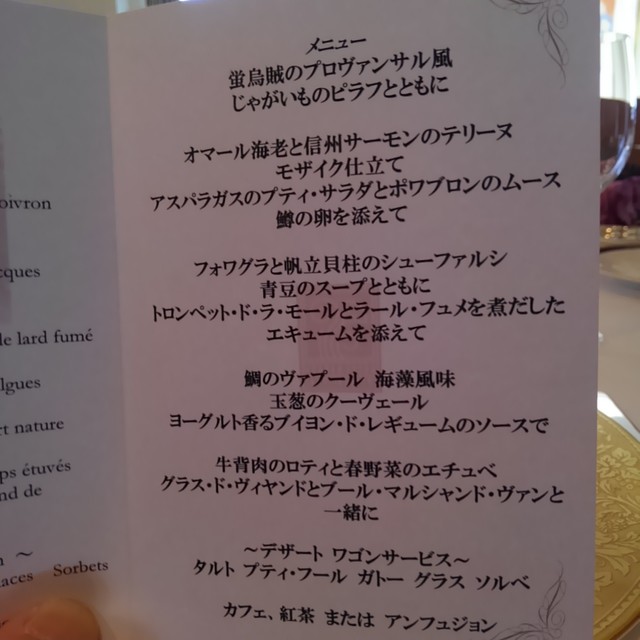 oivron
cques
de lard fumé
lgues
rt nature
ps étuvés
nd de
n ～
laces Sorbets
メニュー
蛍烏賊のプロヴァンサル風
じゃがいものピラフとともに
オマール海老と信州サーモンのテリーヌ
モザイク仕立て
アスパラガスのプティ・サラダとポワブロンのムース
鱒の卵を添えて
フォワグラと帆立貝柱のシューファルシ
青豆のスープとともに
トロンペット・ド・ラ・モールとラール・フュメを煮だした
エキュームを添えて
鯛のヴァプール 海藻風味
玉葱のクーヴェール
ヨーグルト香るブイヨン・ド・レギュームのソースで
牛背肉のロティと春野菜のエチュベ
グラス・ド・ヴィヤンドとブール・マルシャンド・ヴァンと
一緒に
～デザート ワゴンサービス～
タルト プティ・フール ガトー グラス ソルベ
カフェ、紅茶 または アンフュジョン